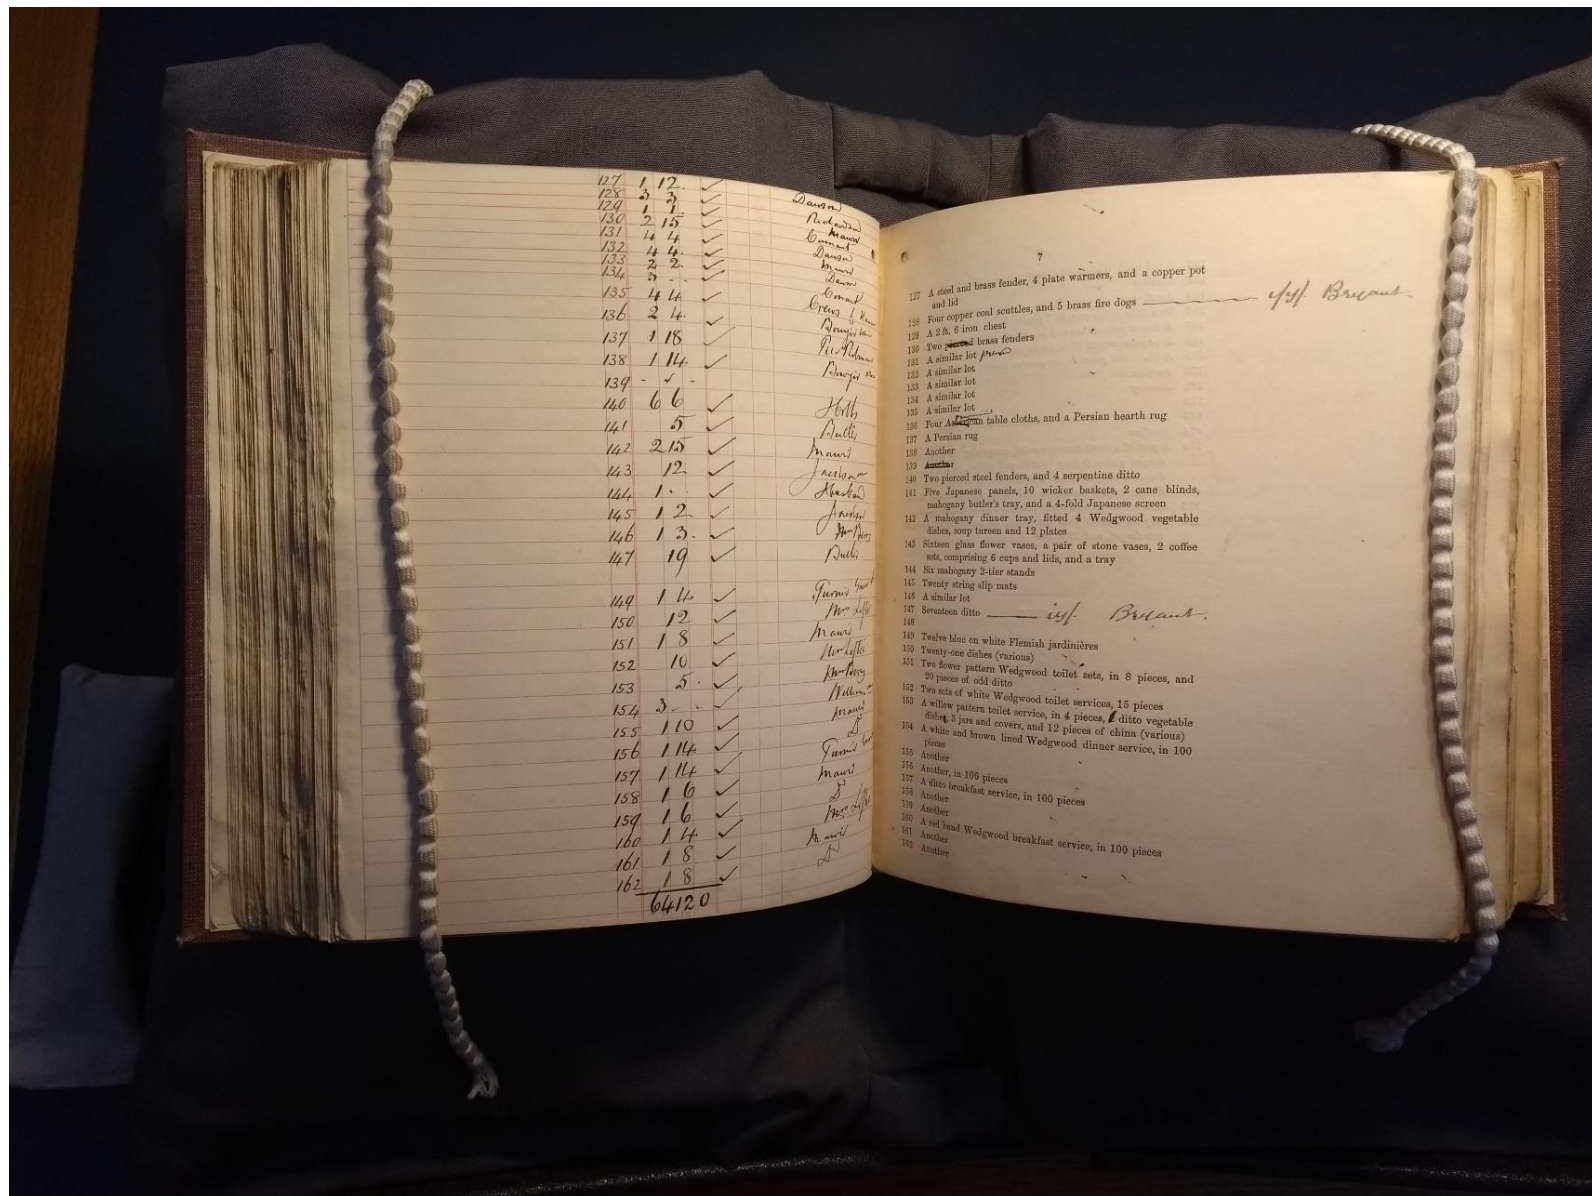 127 1 12
128 3 3 Dawson
129 1 1 Richardson
130 2 15 Mawer
131 4 4
132 4 4 Dawson
133 2 2
134 3 - - Dawson
135 4 4
136 2 4
137 1 18
138 1 14
139 - -
140 6 6
141 5 Butler
142 2 15 Mawer
143 12 Jackson
144 1 - Husband
145 1 2 Jackson
146 1 3
147 19 Butler
149 1 4 Turner
150 12
151 1 8 Mawer
152 10
153 5
154 3 - -
155 1 10 Mawer
156 1 14 D
157 1 14 Turner
158 1 6 Mawer
159 1 6 D
160 1 4
161 1 8 Mawer
162 1 8 D
64 12 0
7
127 A steel and brass fender, 4 plate warmers, and a copper pot
and lid
128 Four copper coal scuttles, and 5 brass fire dogs Bryant.
129 A 2 ft. 6 iron chest
130 Two pierced brass fenders
131 A similar lot
132 A similar lot
133 A similar lot
134 A similar lot
135 A similar lot
136 Four table cloths, and a Persian hearth rug
137 A Persian rug
138 Another
139 Another
140 Two pierced steel fenders, and 4 serpentine ditto
141 Five Japanese panels, 10 wicker baskets, 2 cane blinds,
mahogany butler's tray, and a 4-fold Japanese screen
142 A mahogany dinner tray, fitted 4 Wedgwood vegetable
dishes, soup tureen and 12 plates
143 Sixteen glass flower vases, a pair of stone vases, 2 coffee
sets, comprising 6 cups and lids, and a tray
144 Six mahogany 2-tier stands
145 Twenty string slip mats
146 A similar lot
147 Seventeen ditto Bryant.
148
149 Twelve blue on white Flemish jardinières
150 Twenty-one dishes (various)
151 Two flower pattern Wedgwood toilet sets, in 8 pieces, and
20 pieces of odd ditto
152 Two sets of white Wedgwood toilet services, 15 pieces
153 A willow pattern toilet service, in 4 pieces, ditto vegetable
dishes, 3 jars and covers, and 12 pieces of china (various)
154 A white and brown lined Wedgwood dinner service, in 100
pieces
155 Another
156 Another, in 106 pieces
157 A ditto breakfast service, in 100 pieces
158 Another
159 Another
160 A red band Wedgwood breakfast service, in 100 pieces
161 Another
162 Another